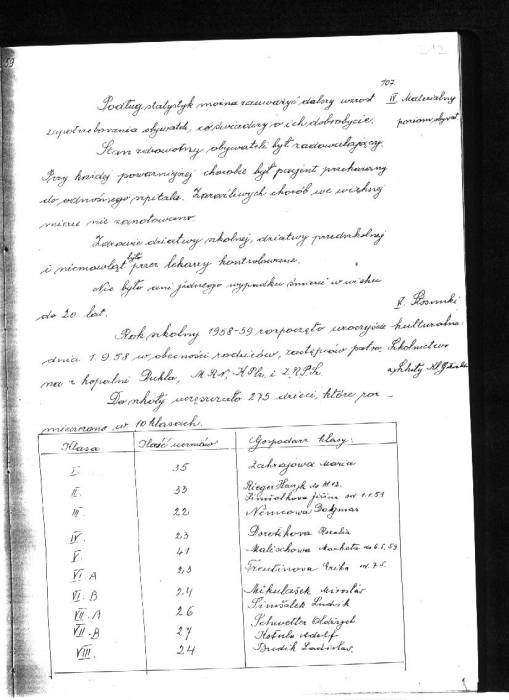 107
Podług statystyk można zauważyć dalszy wzrost
IV Materialny
zapotrzebowania obywatek, co świadczy o ich dobrobycie.
poziom obywat
Stan zdrowotny obywateli był zadowalający.
Przy każdej poważniejszej chorobie był pacjent przekazany
do odnośnego szpitala. Zaraźliwych chorób we większej
mierze nie zanotowano.
Zdrowie dziatwy szkolnej, dziatwy przedszkolnej
i niemowląt było przez lekarzy kontrolowane.
Nie było ani jednego wypadku śmierci w wieku
do 20 lat.
Rok szkolny 1958-59 rozpoczęto uroczyście
kulturalne
dnia 1.9.58 w obecności rodziców, zastępców patro-
Szkolnictwo
na z kopalni M.R.N., K.P.Cz. i Z.R.P.Sz.
a, Szkoły
Do szkoły uczęszczało 275 dzieci, które roz-
mieszczono w 10 klasach.
Klasa Ilość uczniów Gospodarz klasy:
I. 35 Zahrajowa Maria
II. 33 Rieger Henryk do 31.12.
od 1.1.59
III 22 Němcowa Dagmar
IV. 23 Dorotikova Rozalia
V. 41 Malischowa Marketa do 6.5.59
VI. A 23 Trentinova Erika od 7.5.
VI. B 24 Mikulašek Miroslav
VII. A 26 Šimšalek Ludvik
VII. B 27 Schwetter Oldrzych
Kotula Adolf
VIII. 24 Budik Ladislav.